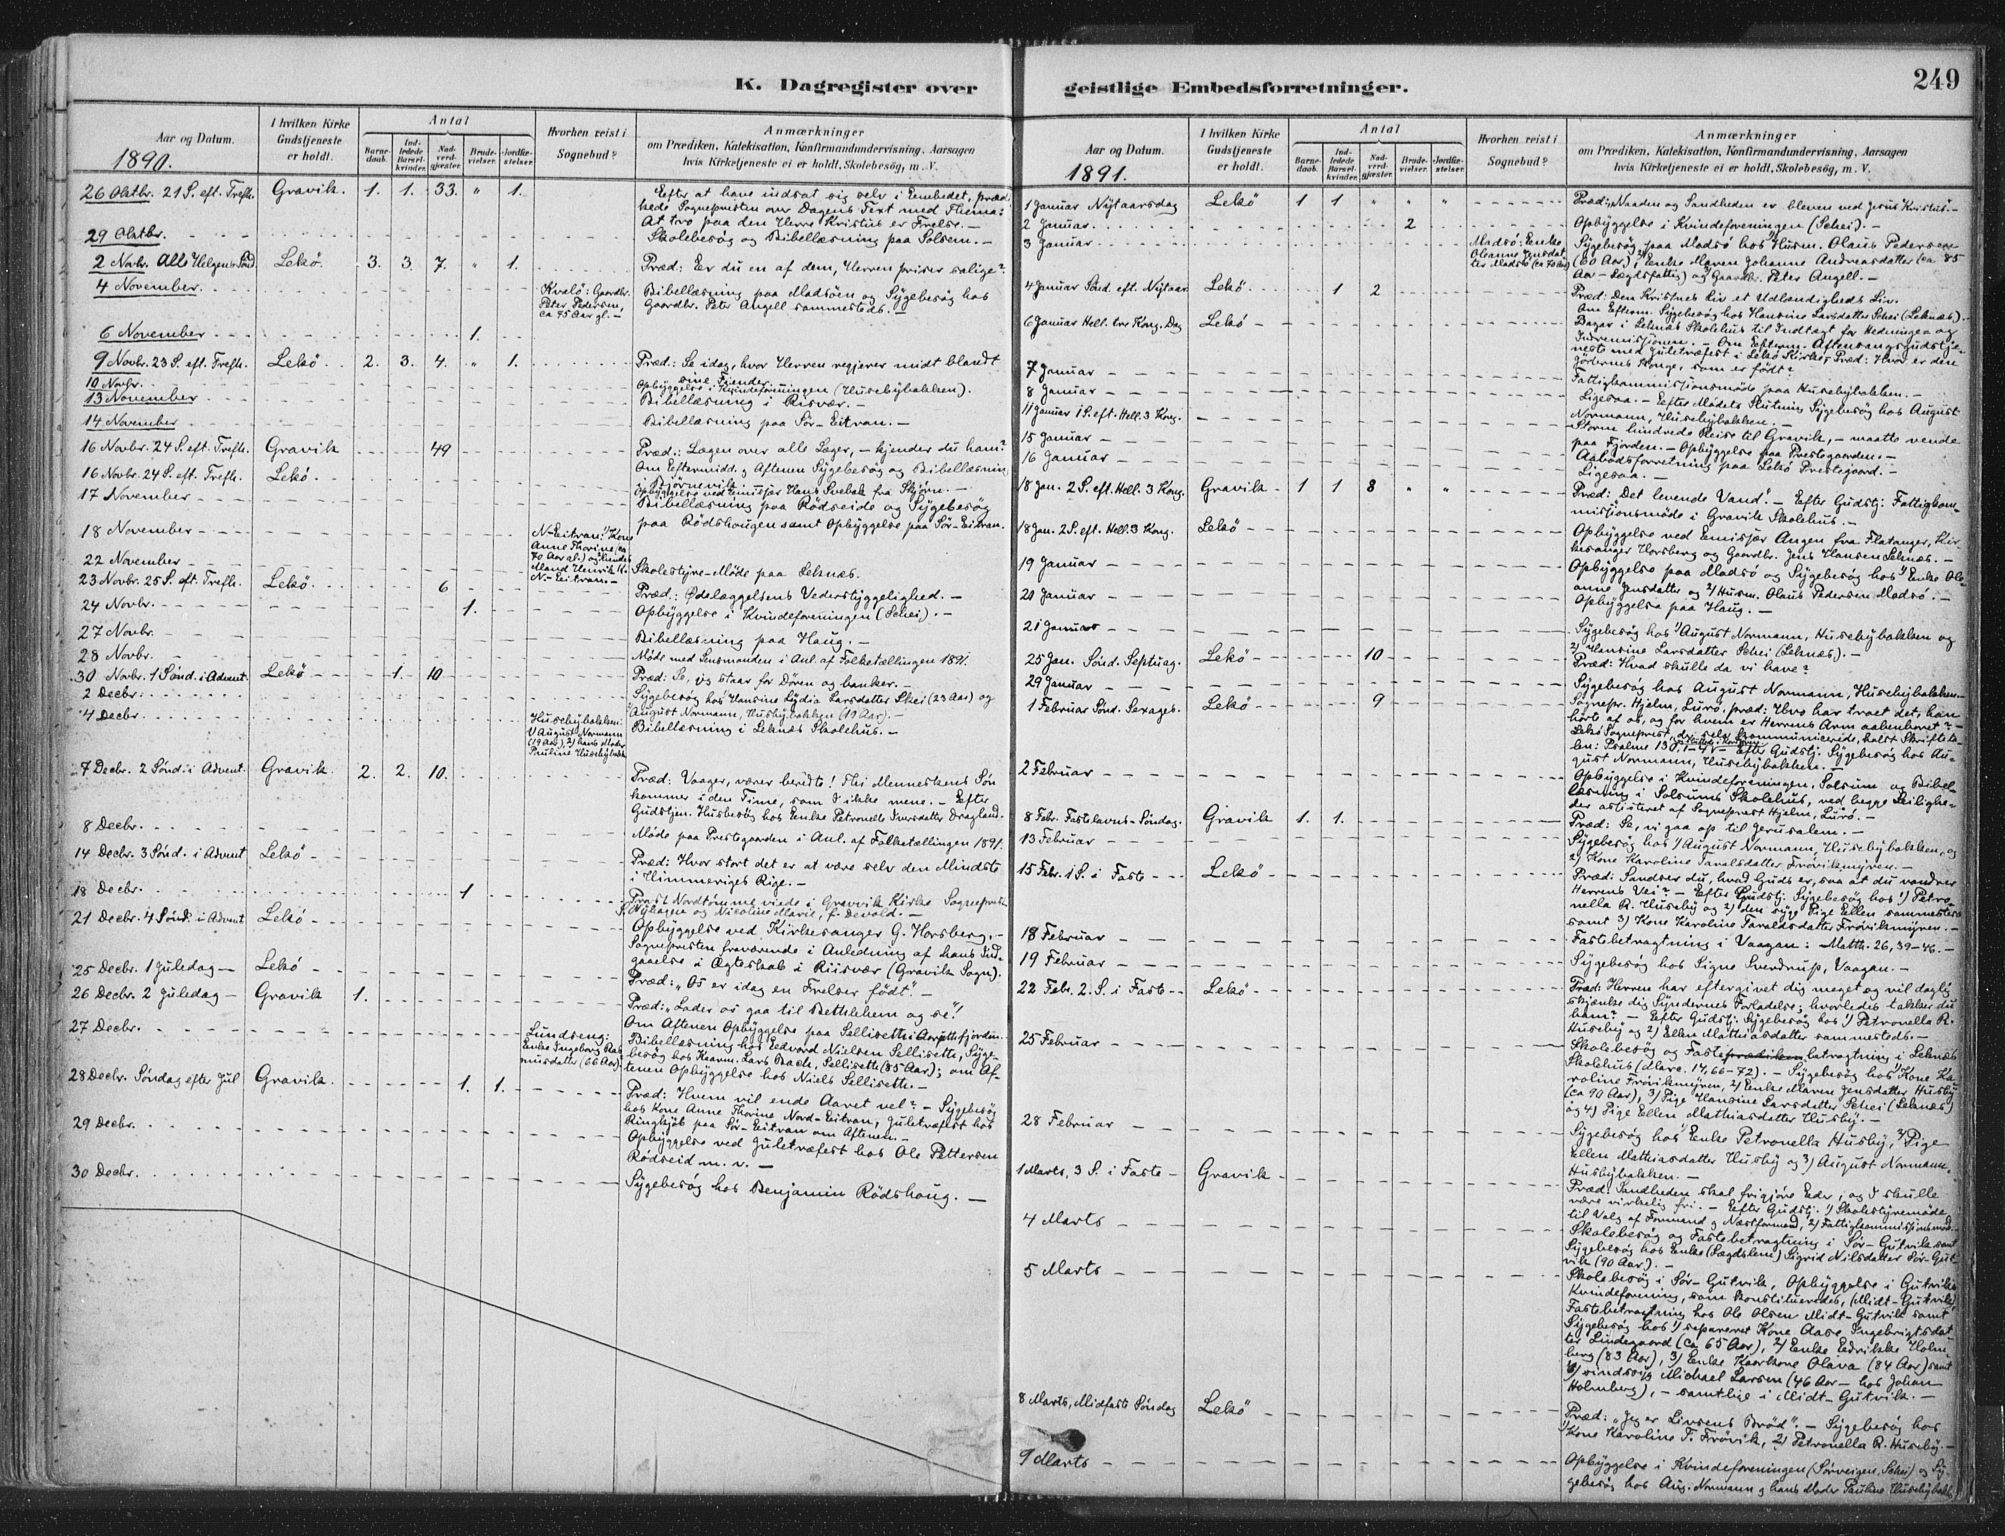 K. Dagregister over
Aar og Datum.
I hvilken Kirke Gudstjeneste er holdt.
Antal
Barnedaab.
Indledede Barselkvinder.
Nadverdgjester.
Brudevielser.
Jordfæstelser.
Hvorhen reist i Sognebud?
Anmærkninger
om Prædiken, Katekisation, Konfirmandundervisning, Aarsagen
hvis Kirketjeneste ei er holdt, Skolebesøg, m. V.
1890.
26 Oktbr. 21 S. eft. Trefh. Gravik. 1. 1. 33. " 1.
Efter at have indsat sig selv i Embedet, præd
kede Sognepresten over Dagens Text med Thema:
At tro paa den Herre Kristus er Frelse. —
29 Oktbr.
Skolebesøg og Bibellæsning paa Solsem. —
2 Novbr. Alle Helgens Sønd Lekø. 3. 3. 7. " 1.
Præd: Er du en af dem, Herren priser salige?
4 November.
Kvalø: Gaardbr.
Peter Pedersen
ca 75 Aar gl.
Bibellæsning paa Madsøen og Sygebesøg hos
Gaardbr. Peter Angell sammesteds. —
6 November 1.
9 Novbr. 23 S. eft. Trefh. Lekø. 2. 3. 4. " 1.
Præd: Se idag, hvor Herren regjerer midt blandt
sine Fiender.
10 Novbr.
Opbyggelse i Kvindeforeningen (Husebybakken).
13 November
Bibellæsning i Risvær. —
14 November
Bibellæsning paa Sør-Eitran. —
16 Novbr. 24 S. eft. Trefh. Gravik 49
Præd.: Lægen over alle Læger, — kjender du ham?
Om Eftermidd. og Aftenen Sygebesøg og Bibellæsning
i Bjørnevik. —
16 Novbr. 24 S. eft. Trefh. Lekø.
Opbyggelse ved Emissær Hans Svebak fra Skjørn. —
17 November
Bibellæsning paa Rødseide og Sygebesøg
paa Rødshougen samt Opbyggelse paa Sør-Eitran.
18 November
N-Eitran: 1/ Kone
Anne Thorine (ca
70 Aar gl.) og hendes
Mand Henrik H.
N-Eitran. —
22 November
Skolestyre-Møde paa Leknæs.
23 Novbr. 25 S. eft. Trefh. Lekø. 6
Præd: Ødelæggelsens Vederstyggelighed. —
24 Novbr. 1.
Opbyggelse i Kvindeforeningen (Schei). —
27 Novbr.
Bibellæsning paa Haug. —
28 Novbr.
Møde med Lensmanden i Anl. af Folketællingen 1891.
30 Novbr. 1 Sønd. i Advent. Lekø 1. 10
Præd: Se, jeg staar for Døren og banker. —
2 Decbr.
Sygebesøg hos Hansine Lydia Larsdatter Skei (23 Aar) og
August Normann, Husebybakken (19 Aar). —
4 Decbr.
Husebybakken:
1/ August Normann
(19 Aar), 2/ hans Moder
Pauline Husebybakk
Bibellæsning i Leknæs Skolehus. —
7 Decbr. 2 Sønd. i Advent. Gravik 2. 2. 10.
Præd: Vaager, værer beredte! Thi Menneskens Søn
kommer i den Time, som I ikke mene. — Efter
Gudstjen. Husbesøg hos Enke Petronelle Iversdatter Dragland.
8 Decbr.
Møde paa Prestegaarden i Anl. af Folketællingen 1891.
14 Decbr. 3 Sønd. i Advent Lekø
Præd: Hvor stort det er at være selv den Mindste
i Himmeriges Rige. —
18 Decbr. 1
Prost Nordtømme viede i Gravik Kirke Sogneprest
S. Nyhagen og Nicoline Marie, f. Devold. —
21 Decbr. 4 Sønd. i Advent Lekø
Opbyggelse ved Kirkesanger G. Horsberg. —
Sognepresten fraværende i Anledning af hans Ind-
gaaelse i Ægteskab i Riisvær (Gravik Sogn).
25 Decbr. 1 Juledag — Lekø
Præd: „Os er idag en Frelser født". —
26 Decbr. 2 Juledag — Gravik 1.
Præd: „Lader os gaa til Bethlehem og se"!
Om Aftenen Opbyggelse paa Sellisette i Aarsethfjorden.
27 Decbr.
Lundseng:
Enke Ingeborg Ras
musdatter (66 Aar)
Bibellæsning hos Edvard Nielsen Sellisette, Syge-
besøg hos Kaarm. Lars Baak, Sellisette (85 Aar); om Af-
tenen Opbyggelse hos Niels Sellisette. —
28 Decbr. Søndag efter Jul Gravik. 1. 1.
Præd: Hvem vil ende Aaret vel? — Sygebesøg
hos Kone Anne Thorine Nord-Eitran, Juletræfest hos
Ringkjøb paa Sør-Eitran om Aftenen. —
29 Decbr.
Opbyggelse ved Juletræfest hos Ole Pettersen
Rødseid m. v. —
30 Decbr.
Sygebesøg hos Benjamin Rødshoug. —
geistlige Embedsforretninger.
249
Aar og Datum.
I hvilken Kirke Gudstjeneste er holdt.
Antal
Barnedaab.
Indledede Barselkvinder.
Nadverdgjester.
Brudevielser.
Jordfæstelser.
Hvorhen reist i Sognebud?
Anmærkninger
om Prædiken, Katekisation, Konfirmandundervisning, Aarsagen
hvis Kirketjeneste ei er holdt, Skolebesøg, m. V.
1891.
1 Januar Nytaarsdag Lekø 1 1 " " "
Præd: „Naaden og Sandheden er bleven ved Jesus Kristus". —
2 Januar. 2
Opbyggelse i Kvindeforeningen (Schei). —
3 Januar
Madsø: Enke
Oleanne Jensdat-
ter Madsø (ca 70 Aar)
Sygebesøg paa Madsø hos 1/ Husm. Olaus Pedersen
(60 Aar), 2/ Enke Maren Johanne Andreasdatter (ca 85
Aar — Lægdsfattig) og Gaardb. Peter Angell. —
4 Januar Sønd. eft. Nytaar Lekø 1 2
Præd: Den Kristnes Liv et Udlændigheds Liv.
Om Efterm. Sygebesøg hos Hansine Larsdatter Schei (Leknæs). —
6 Januar Hell. tre Kong. Dag Lekø
Bazar i Leknæs Skolehus til Indtægt for Hedningen og
Indremissionen. — Om Efterm. Aftensangsgudstje-
neste med Juletræfest i Lekø Kirke; Præd: Hvor er den
Jødernes Konge, som er født?
7 Januar
Fattigkommissionsmøde paa Husebybakken. —
8 Januar
Ligesaa. — Efter Mødets Slutning Sygebesøg hos August
Normann, Husebybakken. —
11 Januar 1 S. eft. Hell. 3 Kong.
Storm hindrede Reise til Gravik, — maatte vende
paa Fjorden. — Opbyggelse paa Prestegaarden. —
15 Januar
Aabodsforretning paa Lekø Prestegaard. —
16 Januar
Ligesaa. —
18 Jan. 2 S. eft. Hell. 3 Kong. Gravik 1 1 8 " "
Præd: „Det levende Vand". — Efter Gudstj: Fattigkom-
missionsmøde i Gravik Skolehus. —
18 Jan. 2 S. eft. Hell. 3 Kong. Lekø
Opbyggelse ved Emissær Aagen fra Flatanger, Kir-
kesanger Horsberg og Gaardbr. Jens Hansen Leknæs. —
19 Januar
Opbyggelse paa Madsø og Sygebesøg hos 1/ Enke Ole-
anne Jensdatter og 2/ Husm. Olaus Pedersen Madsø. —
20 Januar
Opbyggelse paa Haug. —
21 Januar
Sygebesøg hos 1/ August Normann, Husebybakken og
2/ Hansine Larsdatter Schei (Leknæs). —
25 Jan. Sønd. Septuag. Lekø 10
Præd: Hvad skulle da vi have?
29 Januar
Sygebesøg hos August Normann, Husebybakken. —
1 Februar Sønd. Sexages. Lekø 9
Sognepr. Hjelm, Lurø, præd: Hvo har troet det, han
hørte af os, og for hvem er Herrens Arm aabenbaret? —
Lekø Sogneprest, der selv kommunicerede, holdt Skrifteta-
len: Psalme 130, 1-4. — Efter Gudstj. Sygebesøg hos Au-
gust Normann, Husebybakken. —
2 Februar
Opbyggelse i Kvindeforeningen, Solsum og Bibel-
læsning i Solsums Skolehus, ved begge Leilighe-
der assisteret af Sogneprest Hjelm, Lurø. —
8 Febr. Fastelavns-Søndag. Gravik 1. 1.
Præd: Se, vi gaa op til Jerusalem. —
13 Februar
Sygebesøg hos 1/ August Normann, Husebybakken, og
2/ Kone Karoline Taraldsdatter Frøvikmyren. —
15 Febr. 1 S. i Faste Lekø
Præd: Sandser du, hvad Guds er, saa at du vandrer
Herrens Vei? — Efter Gudstj. Sygebesøg hos 1/ Petro-
nella R. Huseby og 2/ den syge Pige Ellen sammesteds
samt 3/ Kone Karoline Taraldsdatter Frøvikmyren. —
18 Februar
Fastebetragtning i Vaagan: Matth. 26, 39-46. —
19 Februar
Sygebesøg hos Signe Sverdrup, Vaagan. —
22 Febr. 2. S. i Faste Lekø
Præd: Herren har eftergivet dig meget og vil daglig
skjænke dig Syndernes Forladelse; hvorledes takker du
ham? — Efter Gudstj. Sygebesøg hos 1/ Petronella R.
Huseby og 2/ Ellen Mathiasdatter sammesteds. —
25 Februar
Skolebesøg og Fastebetragtning i Leknæs
Skolehus (Marc. 14, 66-72). — Sygebesøg hos 1/ Kone Ka-
roline Frøvikmyren, 2/ Enke Maren Jensdatter Husby
(ca 90 Aar), 3/ Pige Hansine Larsdatter Schei (Leknæs)
og 4/ Pige Ellen Mathiasdatter Husby. —
28 Februar
Sygebesøg hos 1/ Enke Petronella Husby, 2/ Pige
Ellen Mathiasdatter Husby og 3/ August Normann
Husebybakken. —
1 Marts, 3 S. i Faste Gravik
Præd: Sandheden skal frigjøre Eder, og I skulle
være virkelig fri. — Efter Gudstj. 1/ Skolestyremøde
til Valg af Formand og Næstformand, 2/ Fattigkommissionsmøde.
4 Marts
Skolebesøg og Fastebetragtning i Sør-Gutvik samt
Sygebesøg hos Enke (Lægdslem) Sigrid Nilsdatter Sør-Gut-
vik (90 Aar). —
5 Marts
Skolebesøg i Sør-Gutvik, Opbyggelse i Gutvik
Kvindeforening, som konstitueredes, (Midt-Gutvik),
Fastebetragtning hos Ole Olsen Midt-Gutvik samt
Sygebesøg hos 1/ separeret Kone Aase Ingebrigtsdat-
ter Lindegaard (ca 65 Aar), 2/ Enke Edvikke Holm-
berg (83 Aar), 3/ Enke Kaarkone Olava (84 Aar) samt
4/ sindssyg Michael Larsen (46 Aar — hos Johan
Holmberg), — samtlige i Midt-Gutvik. —
8 Marts, Midfaste Søndag Lekø
Præd: „Jeg er Livsens Brød". — Sygebesøg hos
1/ Kone Karoline T. Frøvik, 2/ Petronella R. Huseby. —
9 Marts
Opbyggelse i Kvindeforeningen (Sørveigen, Schei) og Sy-
gebesøg hos Aug. Normann og hans Moder Pauline Husebybakk.